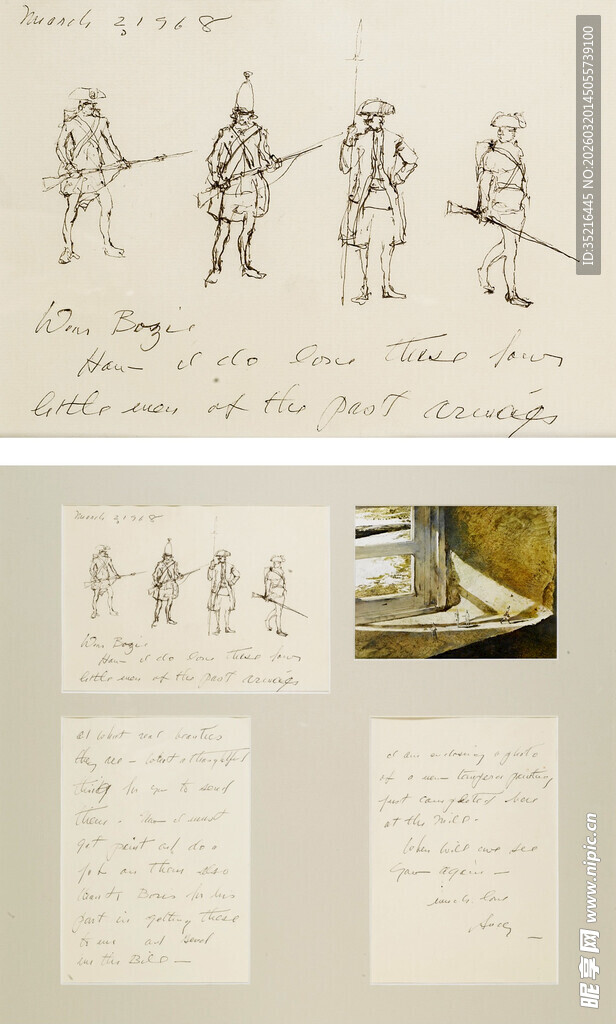 March 2, 1968
Dear Bogie
How I do love these four
little men of the past armies
ID:35216445 NO:20260320145055739100
March 2, 1968
Dear Bogie
How I do love these four
little men of the past armies
oh what real beauties
they are — what a thoughtful
thing for you to send
them. Now I must
get paint and do a
job on them also
thank Boris for his
part in getting these
to me and send
me the Bill —
I am enclosing a photo
of a new tempera painting
just completed here
at the Mill.
When will we see
you again —
much love
Andy
昵享网 www.nipic.cn